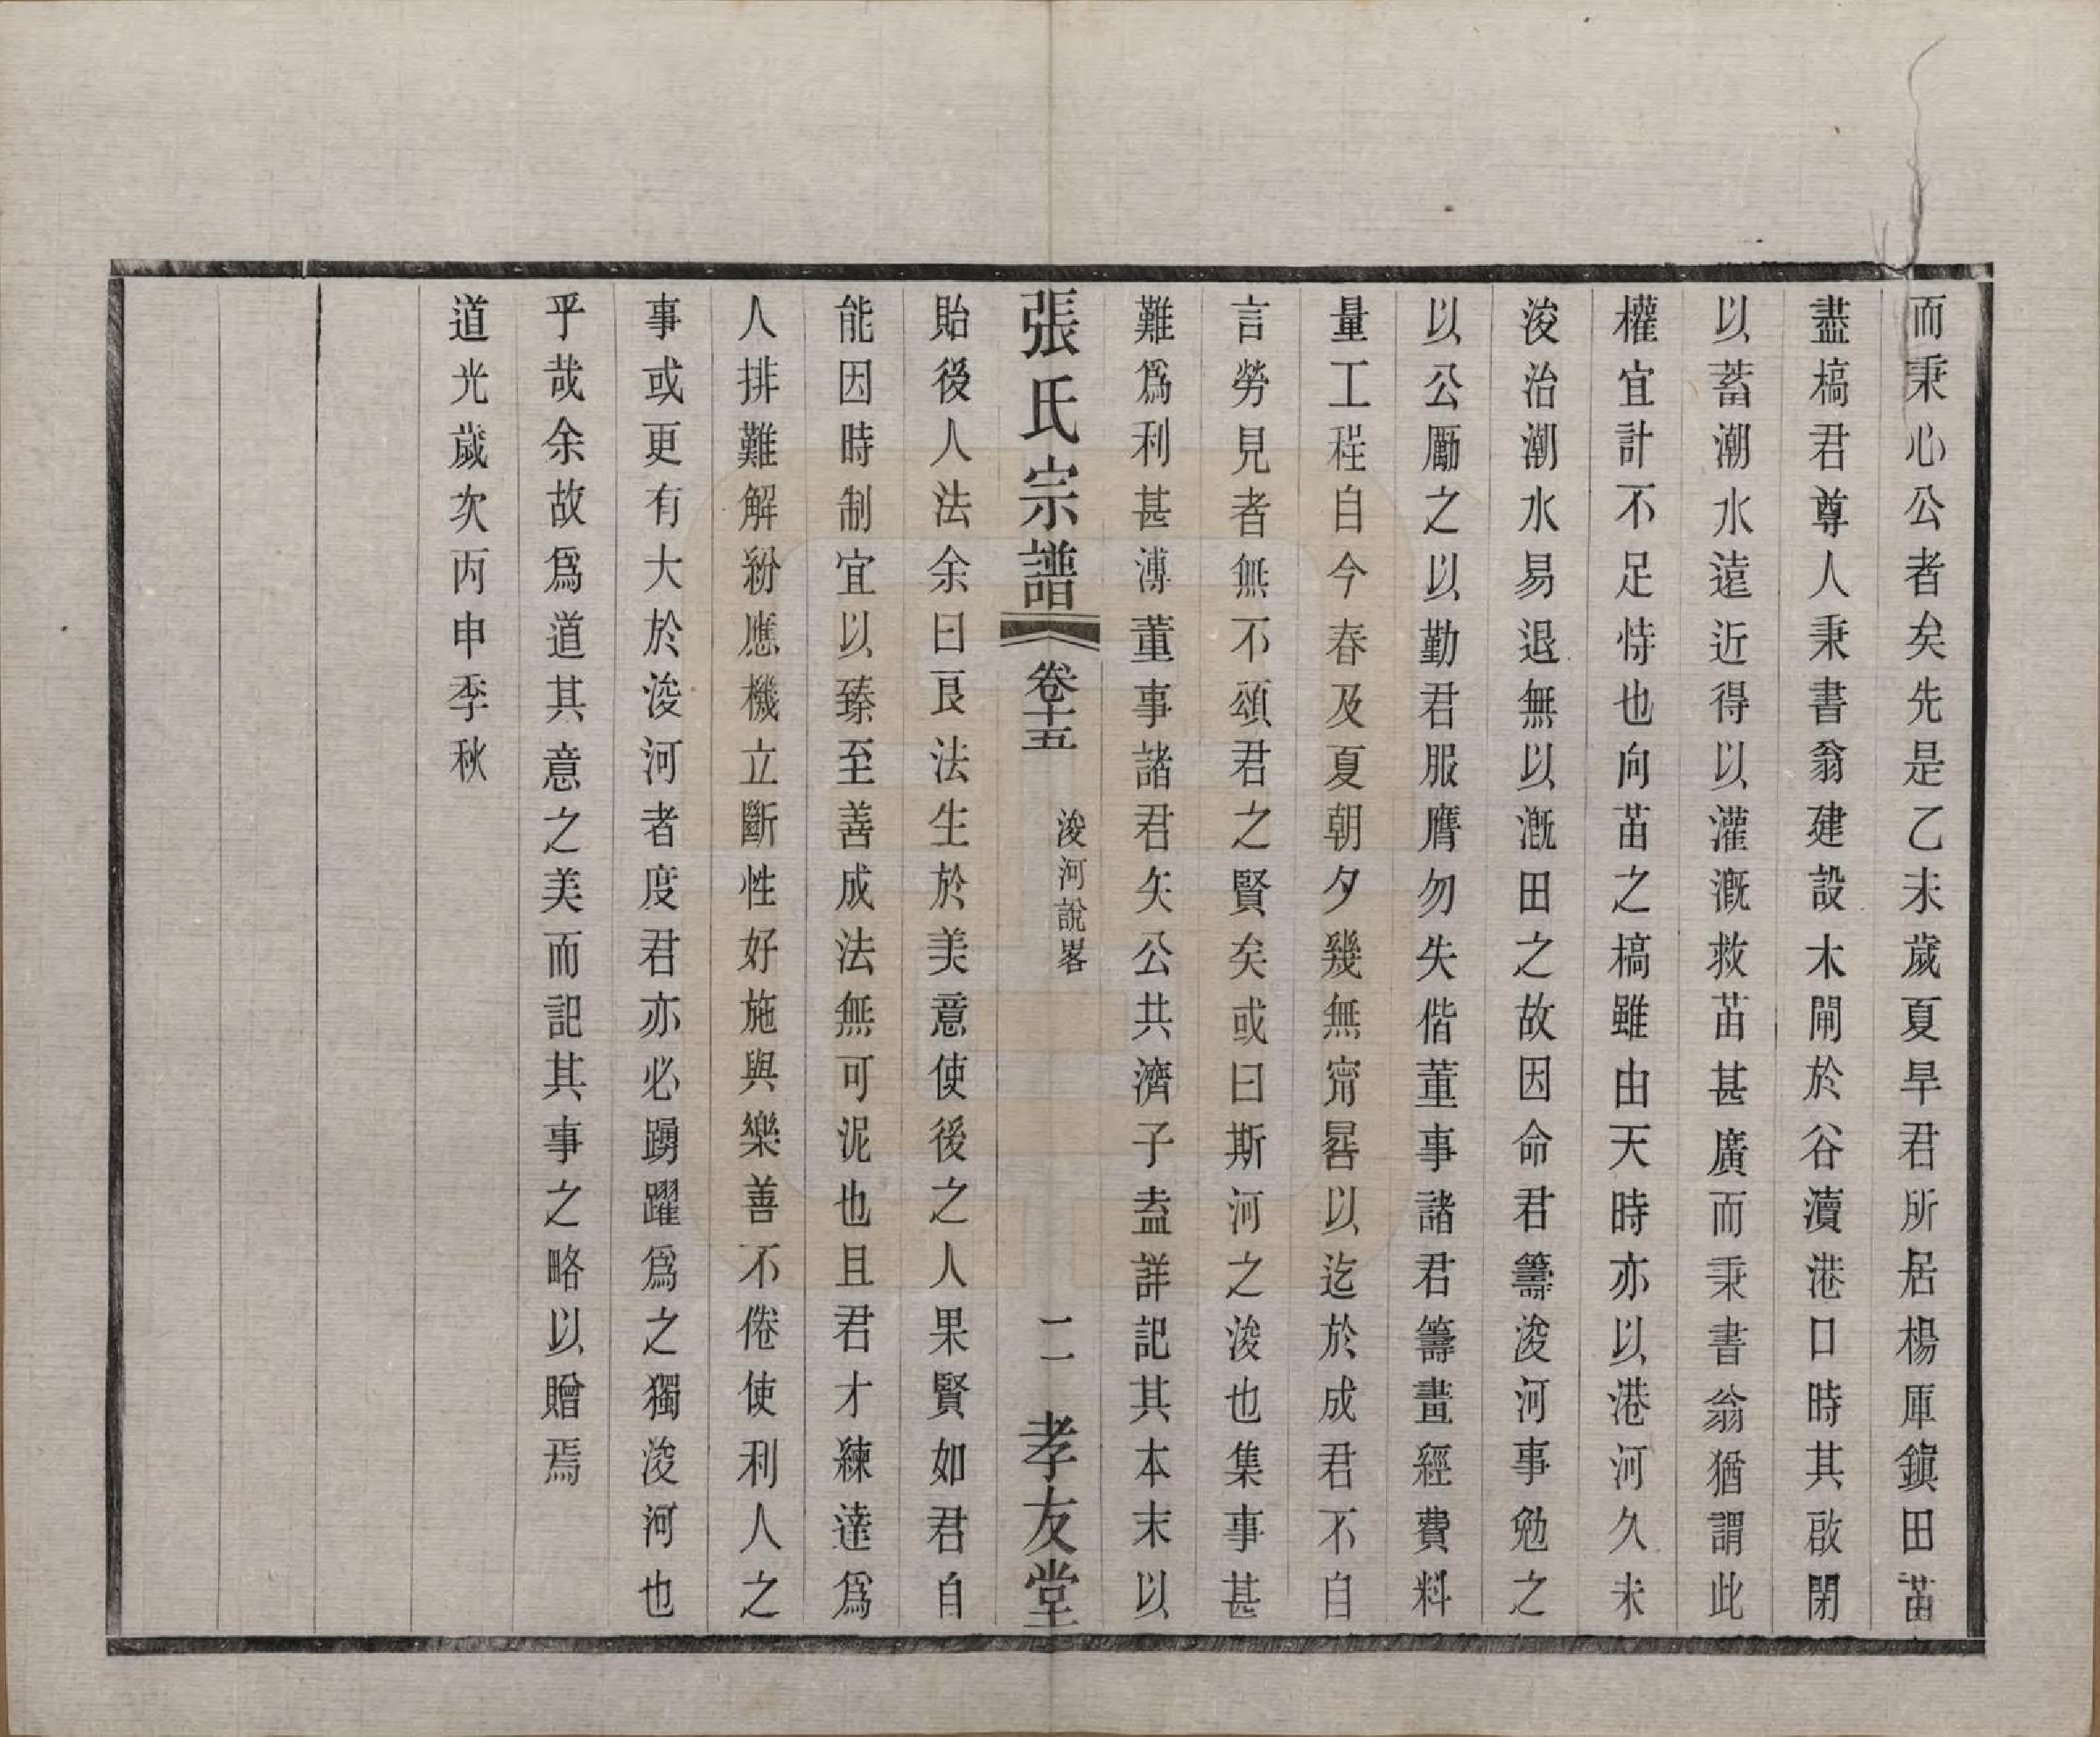 而秉心公者矣先是乙未歲夏旱君所居楊厙鎮田苗
盡槁君尊人秉書翁建設木閘於谷瀆港口時其啟閉
以蓄潮水遠近得以灌溉救苗甚廣而秉書翁猶謂此
權宜計不足恃也向苗之槁雖由天時亦以港河久未
浚治潮水易退無以溉田之故因命君籌浚河事勉之
以公勵之以勤君服膺勿失偕董事諸君籌畫經費料
量工程自今春及夏朝夕幾無甯晷以迄於成君不自
言勞見者無不頌君之賢矣或曰斯河之浚也集事甚
難爲利甚溥董事諸君矢公共濟子盍詳記其本末以
張氏宗譜 卷十五 浚河說畧 二 孝友堂
貽後人法余曰良法生於美意使後之人果賢如君自
能因時制宜以臻至善成法無可泥也且君才練達爲
人排難解紛應機立斷性好施與樂善不倦使利人之
事或更有大於浚河者度君亦必踴躍爲之獨浚河也
乎哉余故爲道其意之美而記其事之略以贈焉
道光歲次丙申季秋